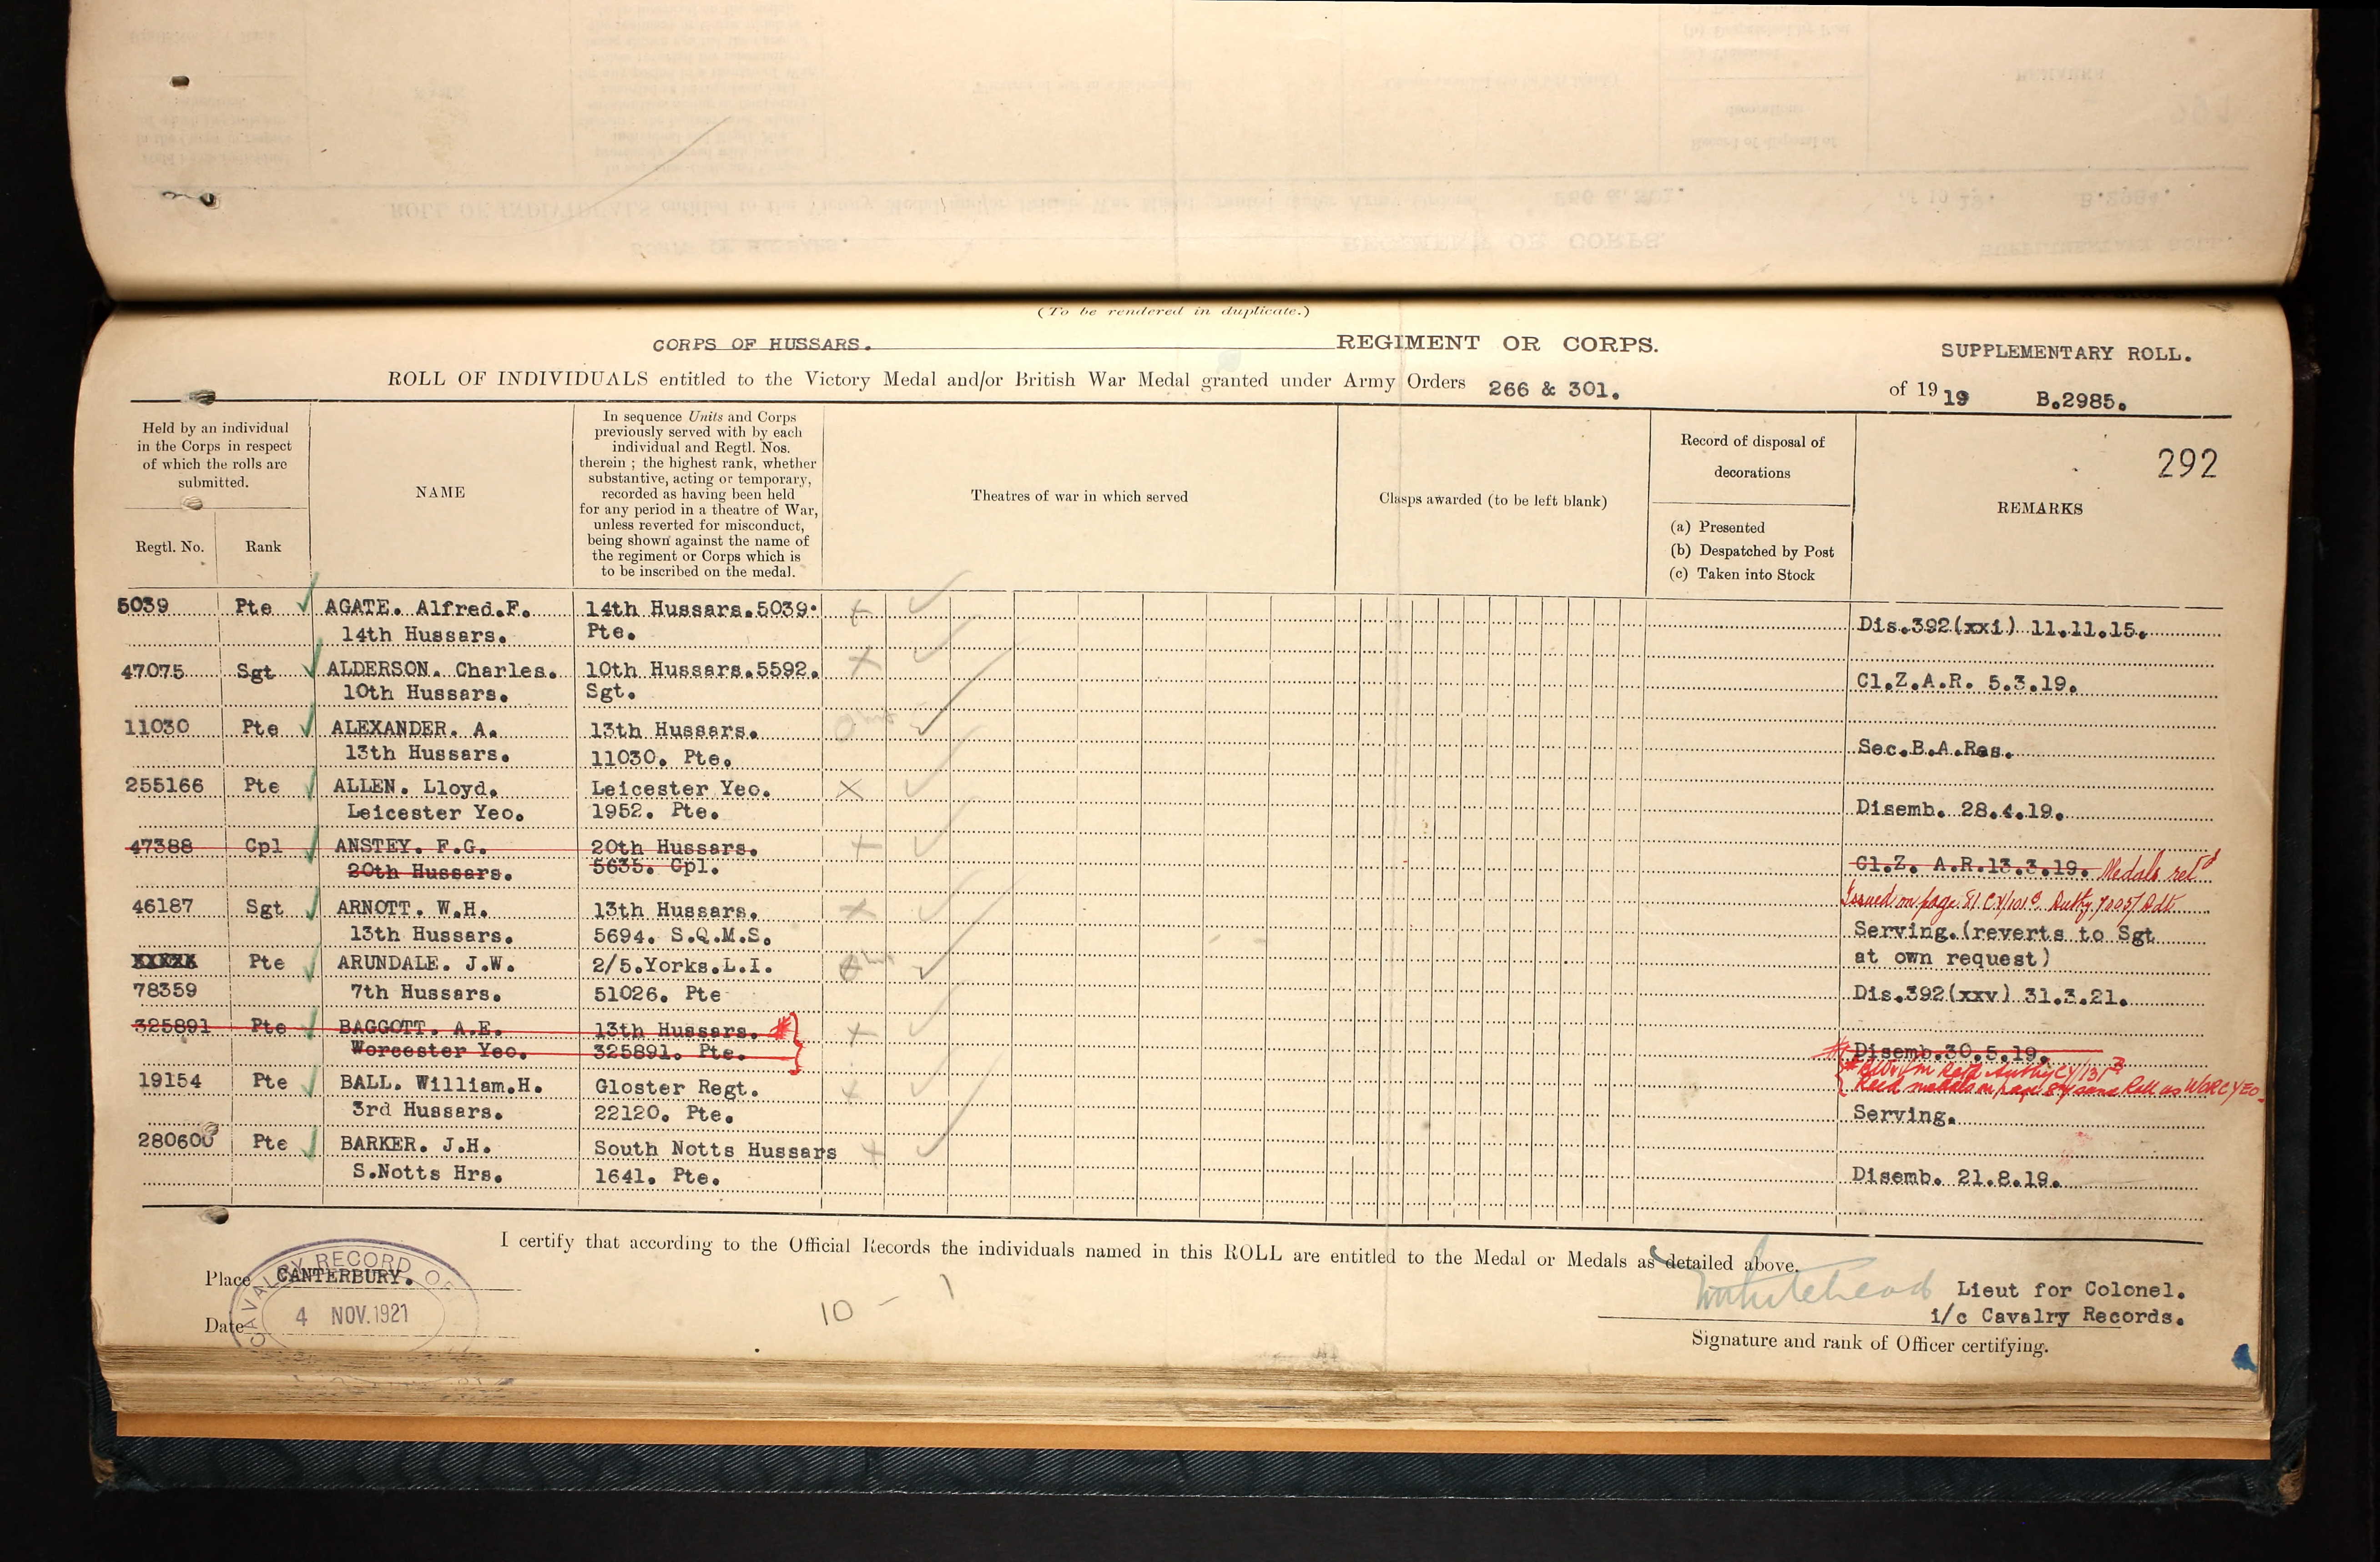 (To be rendered in duplicate.)
CORPS OF HUSSARS. REGIMENT OR CORPS. SUPPLEMENTARY ROLL.
ROLL OF INDIVIDUALS entitled to the Victory Medal and/or British War Medal granted under Army Orders 266 & 301. of 19 19 B.2985.
292
Held by an individual
in the Corps in respect
of which the rolls are
submitted.
Regtl. No. Rank
NAME
In sequence Units and Corps
previously served with by each
individual and Regtl. Nos.
therein ; the highest rank, whether
substantive, acting or temporary,
recorded as having been held
for any period in a theatre of War,
unless reverted for misconduct,
being shown against the name of
the regiment or Corps which is
to be inscribed on the medal.
Theatres of war in which served
Clasps awarded (to be left blank)
Record of disposal of
decorations
(a) Presented
(b) Despatched by Post
(c) Taken into Stock
REMARKS
5039 Pte AGATE. Alfred.F. 14th Hussars.5039.
14th Hussars. Pte. Dis.392(xxi) 11.11.15.
47075 Sgt ALDERSON. Charles. 10th Hussars.5592.
10th Hussars. Sgt. Cl.Z.A.R. 5.3.19.
11030 Pte ALEXANDER. A. 13th Hussars.
13th Hussars. 11030. Pte. Sec.B.A.Res.
255166 Pte ALLEN. Lloyd. Leicester Yeo.
Leicester Yeo. 1952. Pte. Disemb. 28.4.19.
47388 Cpl ANSTEY. F.G. 20th Hussars.
20th Hussars. 5635. Cpl. Cl.Z. A.R.13.3.19. Medals retd
Issued on page 81
46187 Sgt ARNOTT. W.H. 13th Hussars.
13th Hussars. 5694. S.Q.M.S. Serving.(reverts to Sgt
at own request)
XXXXX Pte ARUNDALE. J.W. 2/5.Yorks.L.I.
78359 7th Hussars. 51026. Pte Dis.392(xxv) 31.3.21.
325891 Pte BAGGOTT. A.E. 13th Hussars.
Worcester Yeo. 325891. Pte. Disemb.30.5.19.
same Roll as WORC YEO.
19154 Pte BALL. William.H. Gloster Regt.
3rd Hussars. 22120. Pte. Serving.
280600 Pte BARKER. J.H. South Notts Hussars
S.Notts Hrs. 1641. Pte. Disemb. 21.8.19.
I certify that according to the Official Records the individuals named in this ROLL are entitled to the Medal or Medals as detailed above.
Place CANTERBURY.
CAVALRY RECORD
Date 4 NOV.1921
10 - 1
Whitehead Lieut for Colonel.
i/c Cavalry Records.
Signature and rank of Officer certifying.